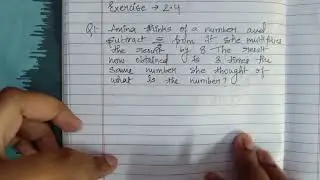 Exercise → 2.4
Q1 Amina thinks of a number and
subtract 5/2 from it she multiplies
the result by 8 The result
now obtained is 3 times the
same number she thought of
what is the number?